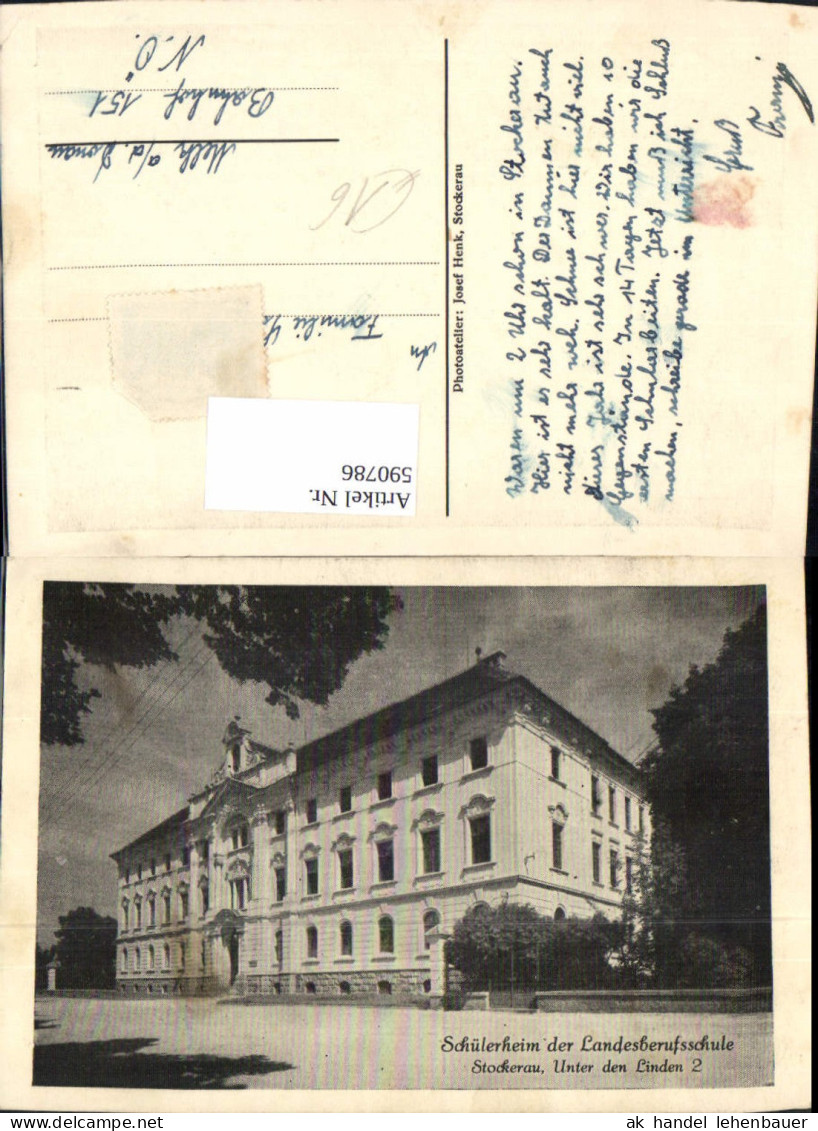 Waren um 2 Uhr schon in Stockerau.
Hier ist es sehr kalt. Der Daumen tut auch
nicht mehr weh. Schnee ist hier nicht viel.
Dieses Jahr ist sehr schwer. Wir haben 10
Gegenstände. In 14 Tagen haben wir die
ersten Schularbeiten. Jetzt muß ich Schluß
machen, schreibe gerade im Unterricht.
Gruß
Franz
Photoatelier: Josef Henk, Stockerau
An
Familie
Melk a/d. Donau
Bahnhof 151
N.Ö.
€16
Artikel Nr.
590786
Schülerheim der Landesberufsschule
Stockerau, Unter den Linden 2
ak handel lehenbauer